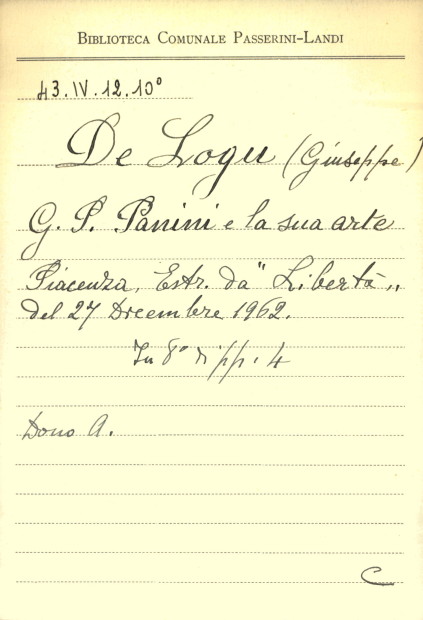 BIBLIOTECA COMUNALE PASSERINI-LANDI
43.IV.12.10°
De Logu (Giuseppe)
G. P. Panini e la sua arte
Piacenza, Estr. da "Libertà"
del 27 Dicembre 1962.
In 8° di pp. 4
Dono A.
C